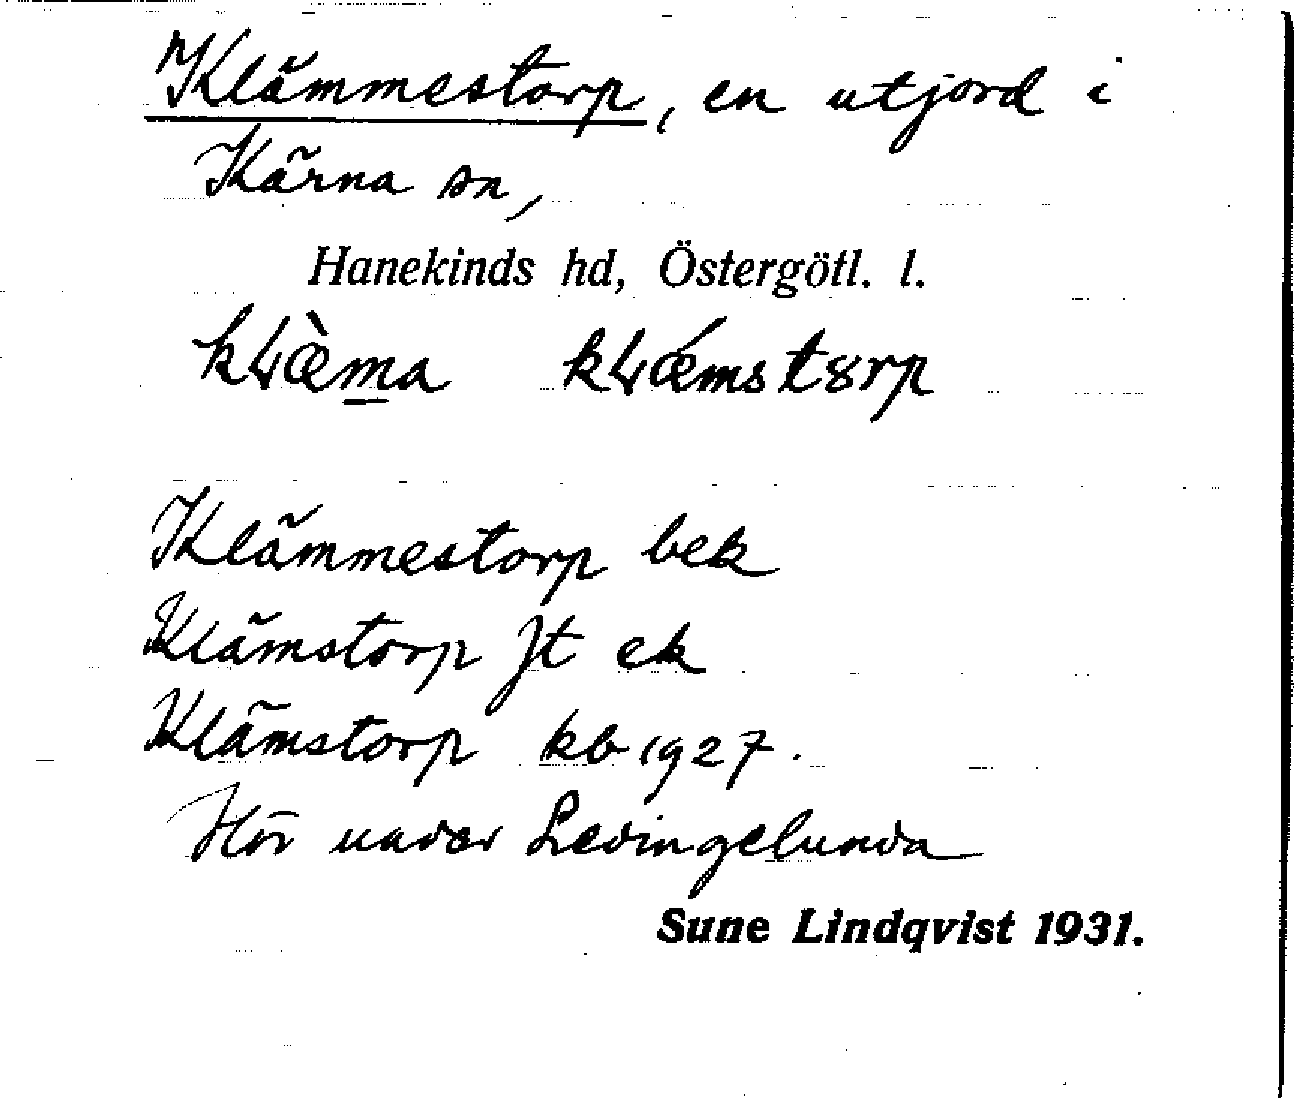 Klämmestorp, en utjord i
Kärna sn,
Hanekinds hd, Östergötl. l.
kɭæ̀m̲a kɭǽmstȣrp
Klämmestorp bek
Klämstorp Jt ek
Klämstorp kb 1927.
Hör under Ledingelunda
Sune Lindqvist 1931.